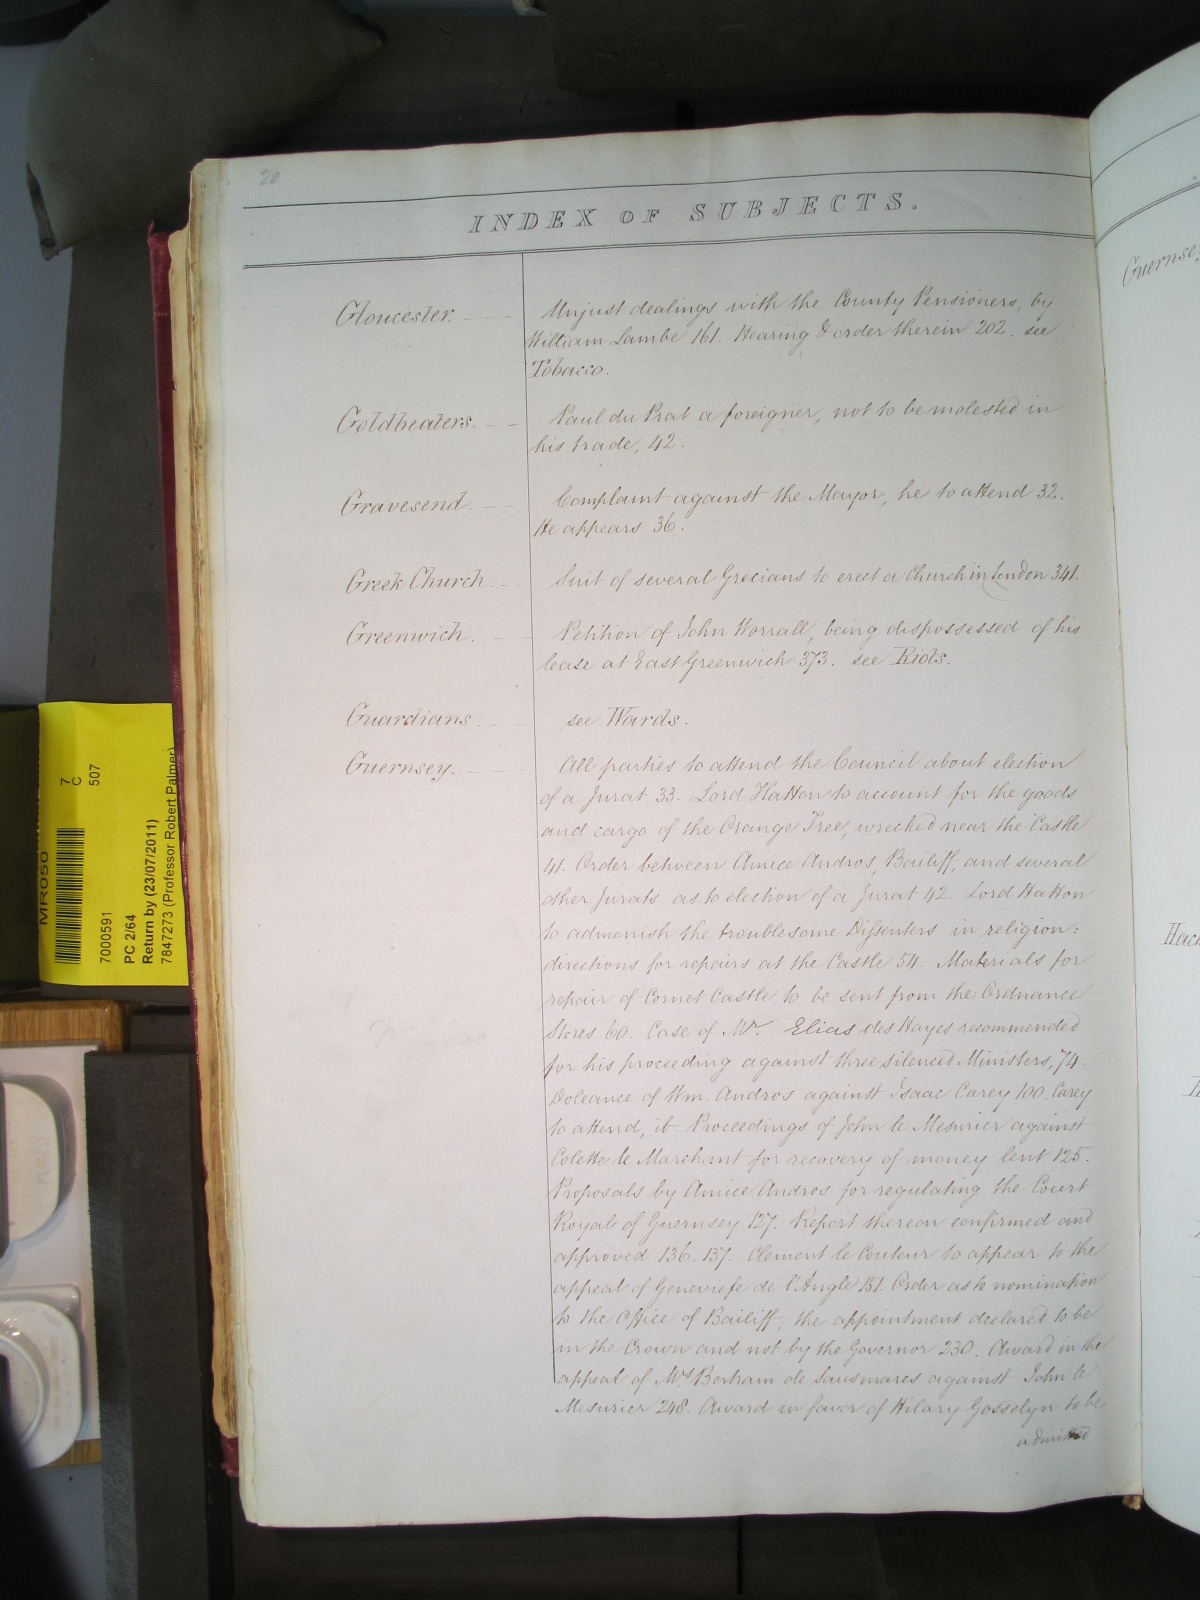 20
INDEX OF SUBJECTS.
Gloucester. Unjust dealings with the County Pensioners, by
William Lambe 161. Hearing & order therein 202. see
Tobacco.
Goldbeaters. Paul du Prat a foreigner, not to be molested in
his trade, 42.
Gravesend. Complaint against the Mayor, he to attend 32.
He appears 36.
Greek Church. Suit of several Grecians to erect a Church in London 341.
Greenwich. Petition of John Worrall, being dispossessed of his
lease at East Greenwich 373. see Riots.
Guardians. see Wards.
Guernsey. All parties to attend the Council about election
of a Jurat 33. Lord Hatton to account for the goods
and cargo of the Orange Tree, wrecked near the Castle
41. Order between Amice Andros, Bailiff, and several
other Jurats as to election of a Jurat 42. Lord Hatton
to admonish the troublesome Dissenters in religion:
directions for repairs at the Castle 54. Materials for
repair of Cornet Castle to be sent from the Ordnance
Stores 60. Case of Mr. Elias des Hayes recommended
for his proceeding against three silenced Ministers, 74.
Doleance of Wm. Andros against Isaac Carey 100. Carey
to attend, ib. Proceedings of John le Mesurier against
Colette le Marchant for recovery of money lent 125.
Proposals by Amice Andros for regulating the Court
Royal of Guernsey 127. Report thereon confirmed and
approved 136. 137. Clement le Couteur to appear to the
appeal of Geneviefe de l'Angle 151. Order as to nomination
to the Office of Bailiff, the appointment declared to be
in the Crown and not by the Governor 230. Award in the
appeal of Mrs Bertram de Sausmares against John le
Mesurier 248. Award in favor of Hilary Gosselyn to be
admitted
Guernsey
MR050
7
C
507
7000591
PC 2/64
Return by (23/07/2011)
7847273 (Professor Robert Palmer)